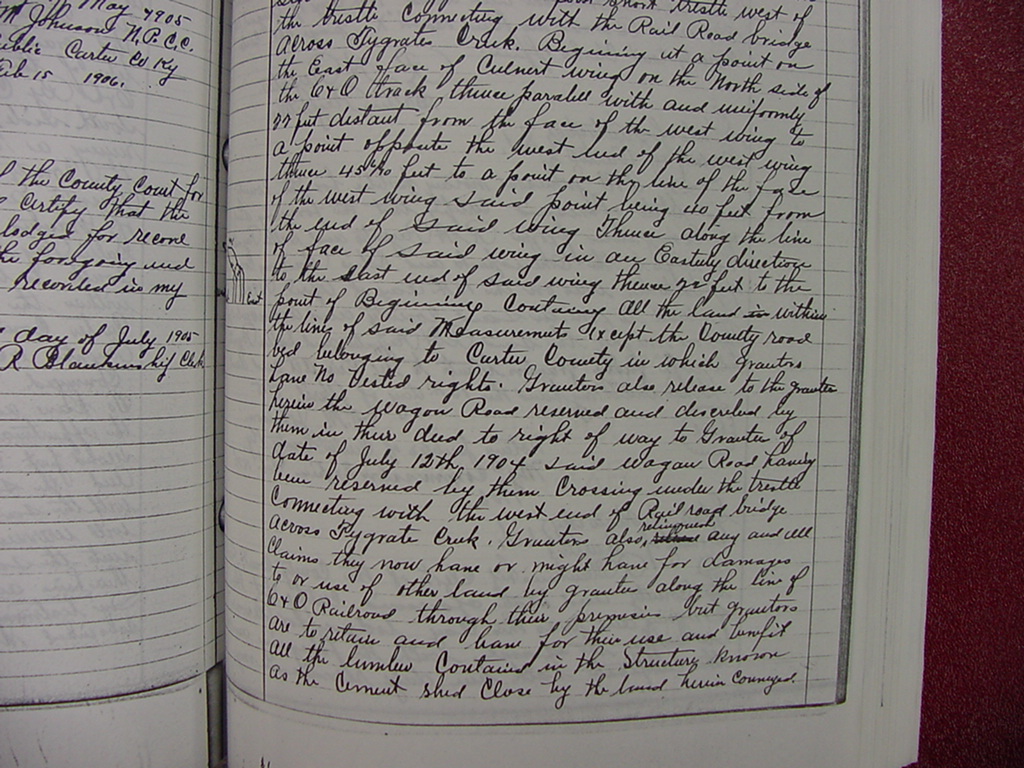 May 1905
Johnson N.P.C.C.
Public Carter Co Ky
Feb 15 1906.
the County Court for
Certify that the
lodged for record
the foregoing and
recorded in my
day of July 1905
R Blankenship Clerk
short trestle west of
the trestle connecting with the Rail Road bridge
across Tygrates Creek. Begining at a point on
the East face of Culvert wing on the North side of
the C&O track thence paralell with and uniformly
22 feet distant from the face of the west wing to
a point opposite the west end of the west wing
thence 45 feet to a point on the line of the face
of the west wing said point being 40 feet from
the end of said wing Thence along the line
of face of said wing in an Easterly direction
to the East end of said wing thence 22 feet to the
East
point of Begining Containing all the land in within
the lines of said Measurements except the County road
bed belonging to Carter County in which grantors
have No Vested rights. Grantors also release to the grantee
herein the Wagon Road reserved and described by
them in their deed to right of way to Grantee of
date of July 12th 1904 said Wagon Road having
been reserved by them Crossing under the trestle
Connecting with the west end of Rail road bridge
across Tygrate Creek. Grantors also relinquish any and all
claims they now have or might have for damages
to or use of other land by grantee along the line of
C&O Railroad through their premises but grantors
are to retain and have for their use and benefit
all the lumber Contained in the Structure known
as the Cement shed Close by the land herein Conveyed.